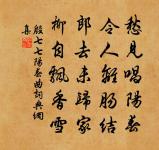 愁見唱陽春
令人離腸結
郎去未歸家
柳自飄香雪
殷七七陽春曲詞典網
集